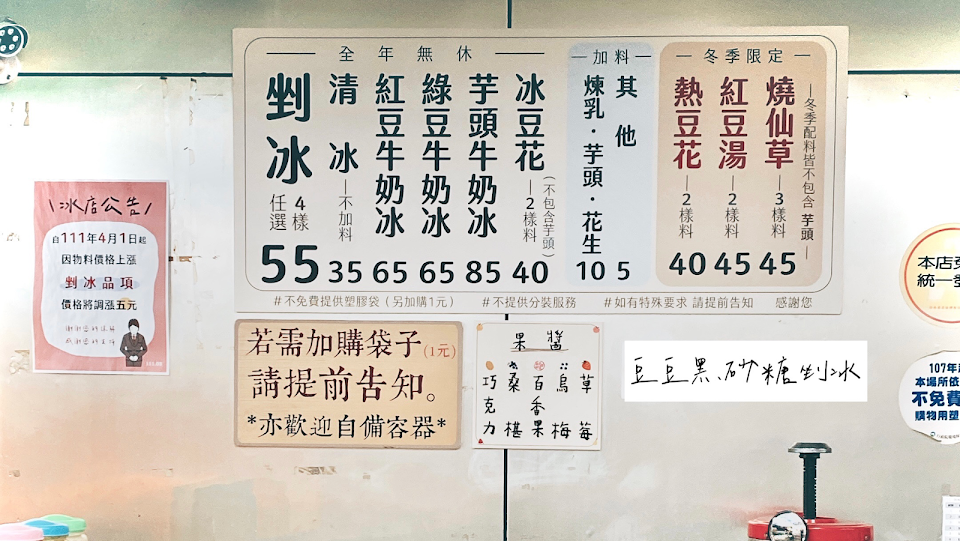 全年無休
剉冰 4樣任選 55
清冰 —不加料 35
紅豆牛奶冰 65
綠豆牛奶冰 65
芋頭牛奶冰 85
冰豆花 —2樣料 (不包含芋頭) 40
— 加料 —
煉乳·芋頭·花生 10
其他 5
— 冬季限定 —
熱豆花 —2樣料 40
紅豆湯 —2樣料 45
燒仙草 —3樣料 45
—冬季配料皆不包含 芋頭—
#不免費提供塑膠袋(另加購1元) #不提供分裝服務 #如有特殊要求 請提前告知 感謝您
冰店公告
自111年4月1日起
因物料價格上漲
剉冰品項
價格將調漲五元
若需加購袋子(1元)
請提前告知。
*亦歡迎自備容器*
果醬
巧克力
桑椹
百香果
烏梅
草莓
豆豆黑砂糖剉冰
本店
統一
107年
本場所依
不免費
購物用塑